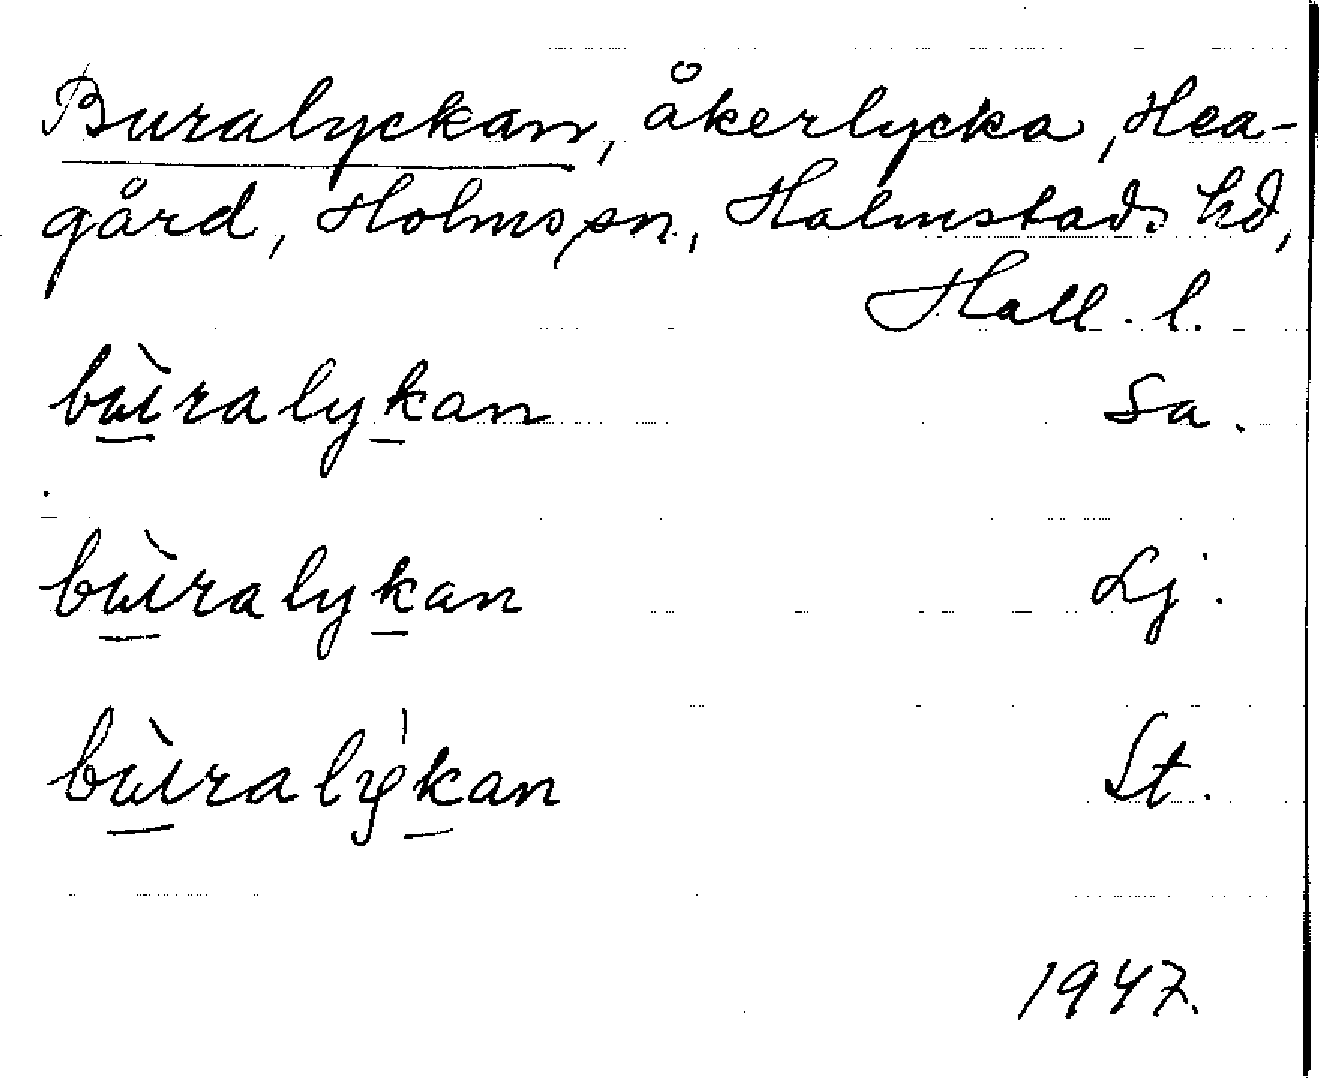 Buralyckan, åkerlycka, Hea-
gård, Holms sn., Halmstads hd,
Hall. l.
bùralykan Sa.
bùralykan Lj.
bùralýkan St.
1947.